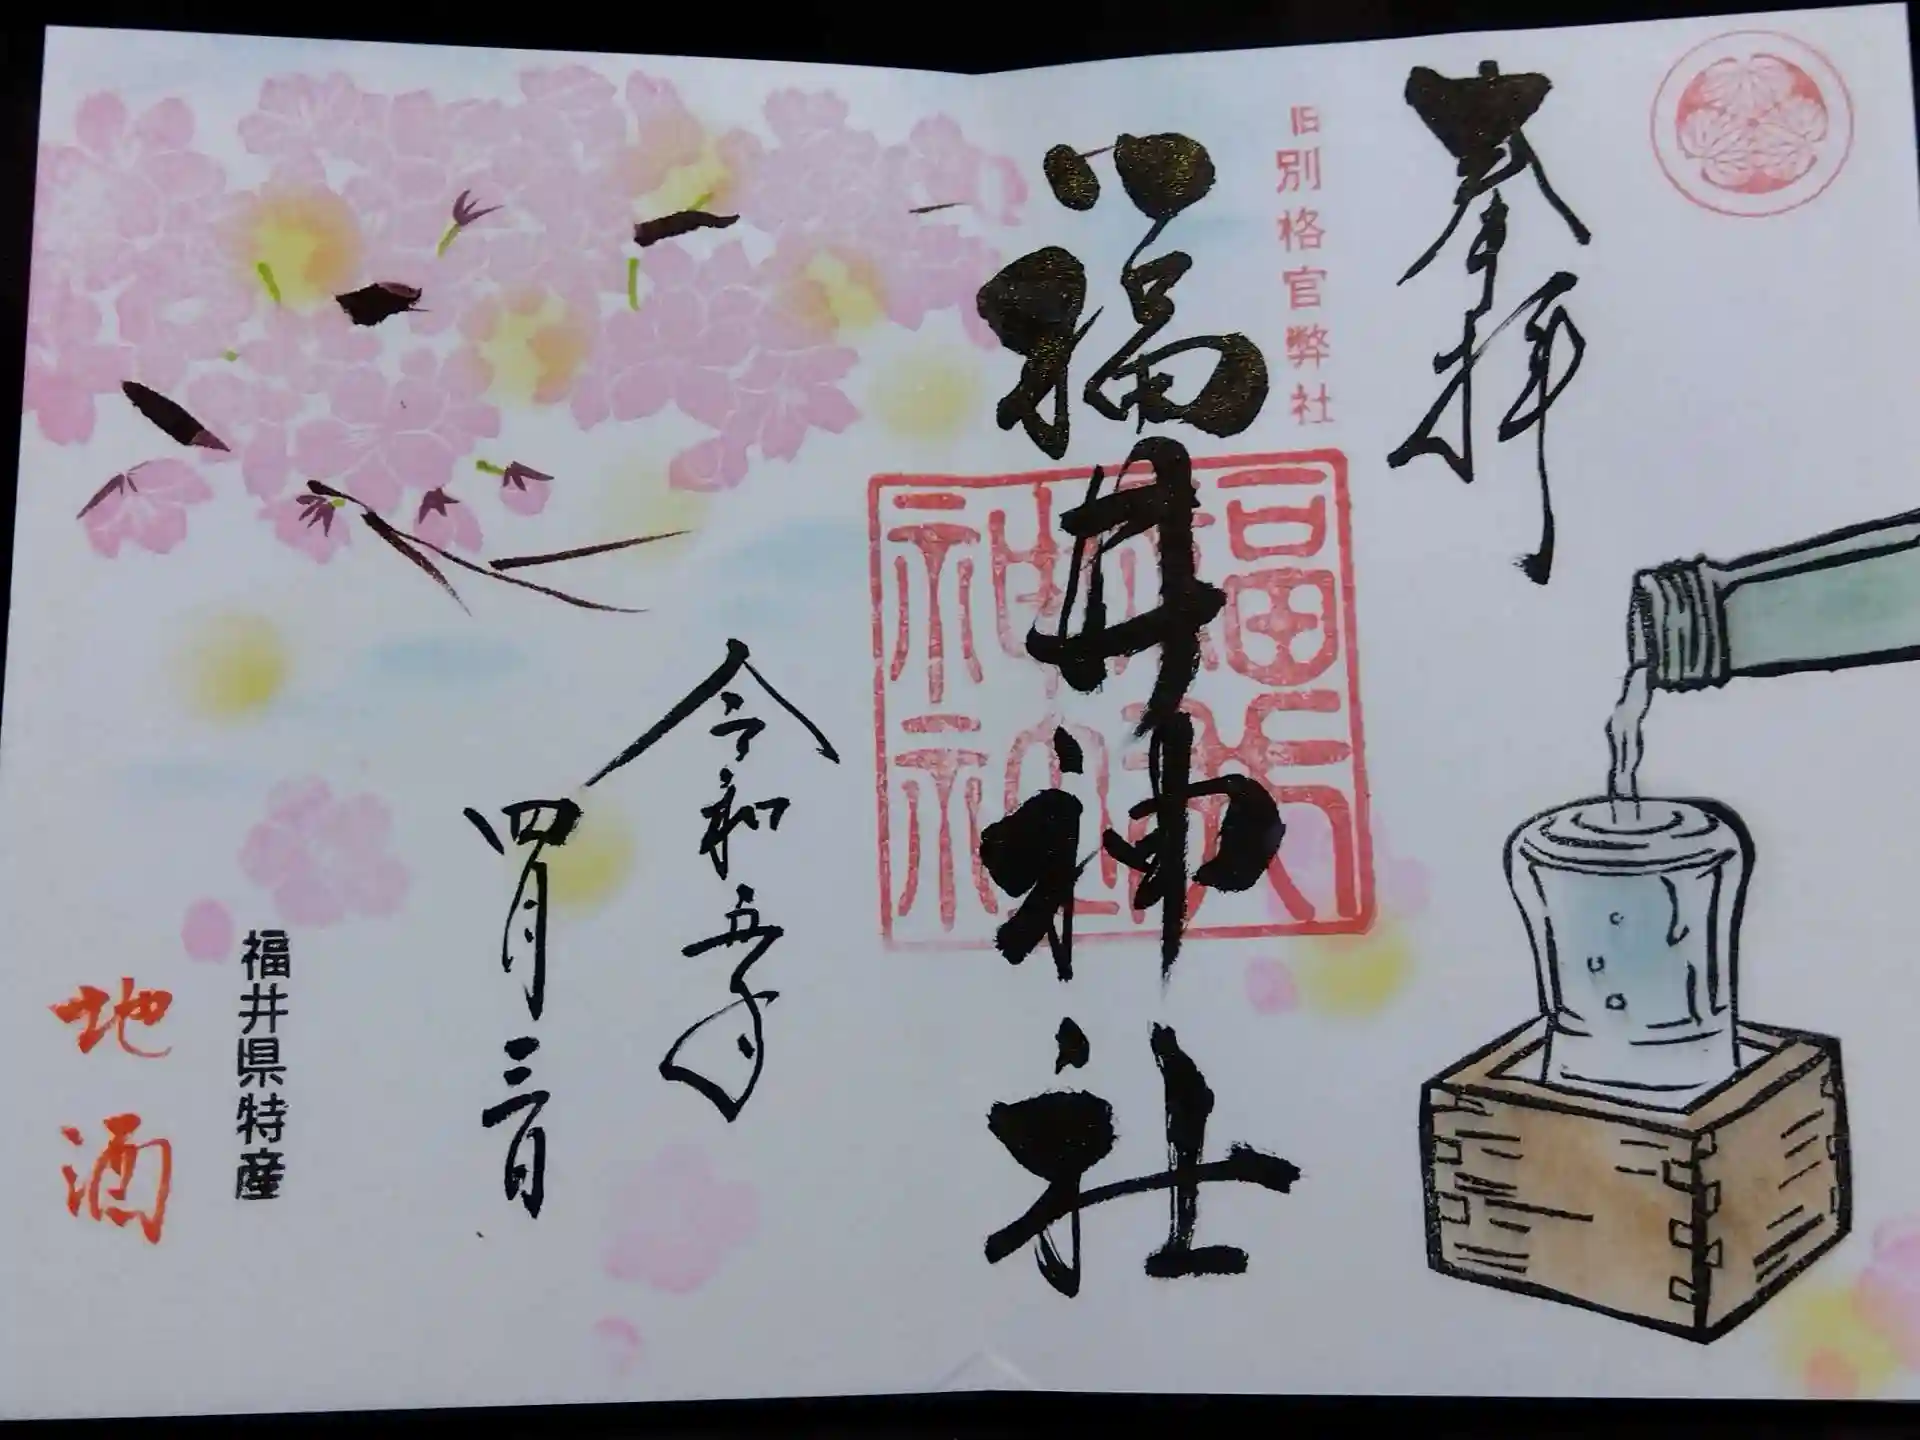 奉拝
旧別格官弊社
福井神社
福井神社
令和五年
四月三日
福井県特産
地酒